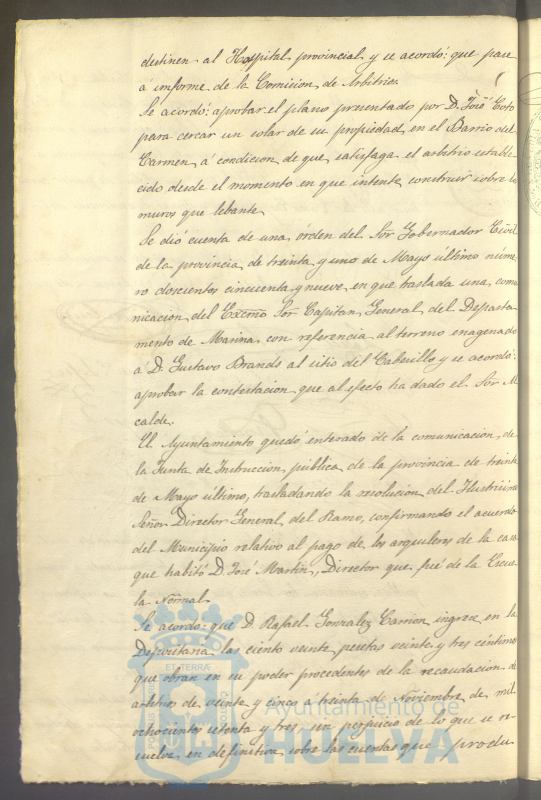 destinen al Hospital provincial y se acordó: que pase
á informe de la Comision de Arbitrios.
Se acordó: aprobar el plano presentado por D. José Coto
para cercar un solar de su propiedad en el Barrio del
Carmen á condicion de que satisfaga el arbitrio estable
cido desde el momento en que intente construir sobre los
muros que lebante.
Se dió cuenta de una órden del Sor Gobernador Civil
de la provincia de treinta y uno de Mayo último núme
ro doscientos cincuenta y nueve, en que traslada una comu
nicacion del Excmo Sor Capitan General del Departa
mento de Marina con referencia al terreno enagenado
á D. Gustavo Brands al sitio del Cabecillo y se acordó:
aprobar la contestacion que al efecto ha dado el Sor Al
calde.
El Ayuntamiento quedó enterado de la comunicacion de
la Junta de Instruccion pública de la provincia de treinta
de Mayo último, trasladando la resolucion del Ilustrísimo
Señor Director General del Ramo, confirmando el acuerdo
del Municipio relativo al pago de los arquileres de la casa
que habitó D. José Martin, Director que fué de la Escue
la Normal.
Se acordó: que D. Rafael Gonzalez Carrion ingrese en la
Depositaria las ciento veinte pesetas veinte y tres céntimos
que obran en su poder procedentes de la recaudacion de
arbitrios de veinte y cinco á treinta de Noviembre de mil
ochocientos setenta y tres, sin perjuicio de lo que se re
suelva en definitiva sobre las cuentas que produ
ET TERRÆ
PORTUS MARIS
CUSTODIA
Ayuntamiento de
HUELVA